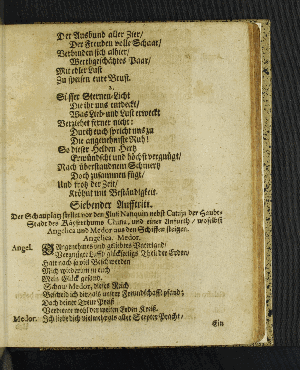 Der Ausbund aller Zier/
Der Freuden volle Schaar/
Verbinden sich alhier/
Werthgeschätztes Paar/
Mit edler Lust
Zu speisen eure Brust.
2.
Ihr Sternen-Licht
Die ihr uns entdeckt/
Was Lieb und Lust erweckt
Verziehet ferner nicht:
Durch euch spricht uns zu
Die angenehmste Ruh!
So dieser Helden Hertz
Erwündscht und höchst vergnügt/
Nach überstandnem Schmertz
Doch zusammen fügt/
Und trotz der Zeit/
Kröhnt mit Beständigkeit.
Siebender Aufftritt.
Der Schauplatz stellet vor den Fluß Nanquin nebst der Haubt-
Stadt des Käyserthums China, und einer Anfurth/ woselbst
Angelica und Medor aus den Schiffen steigen.
Angelica. Medor.
Angel. Angenehmes und geliebtes Vaterland/
Vergnügte Lufft/ glückseeligs Theil der Erden/
Hatt nach so viel Beschwerden
Mich wiederum in euch
Mein Glück gesand.
Schau Medor, dieses Reich
Bescheid ich dir als unsrer Freundschafft pfand;
Doch deiner Treue Preiß
Verdienet wohl der weiten Erden Kreiß.
Medor. Ich liebe dich vielmehr als aller Scepter Pracht/
Ein